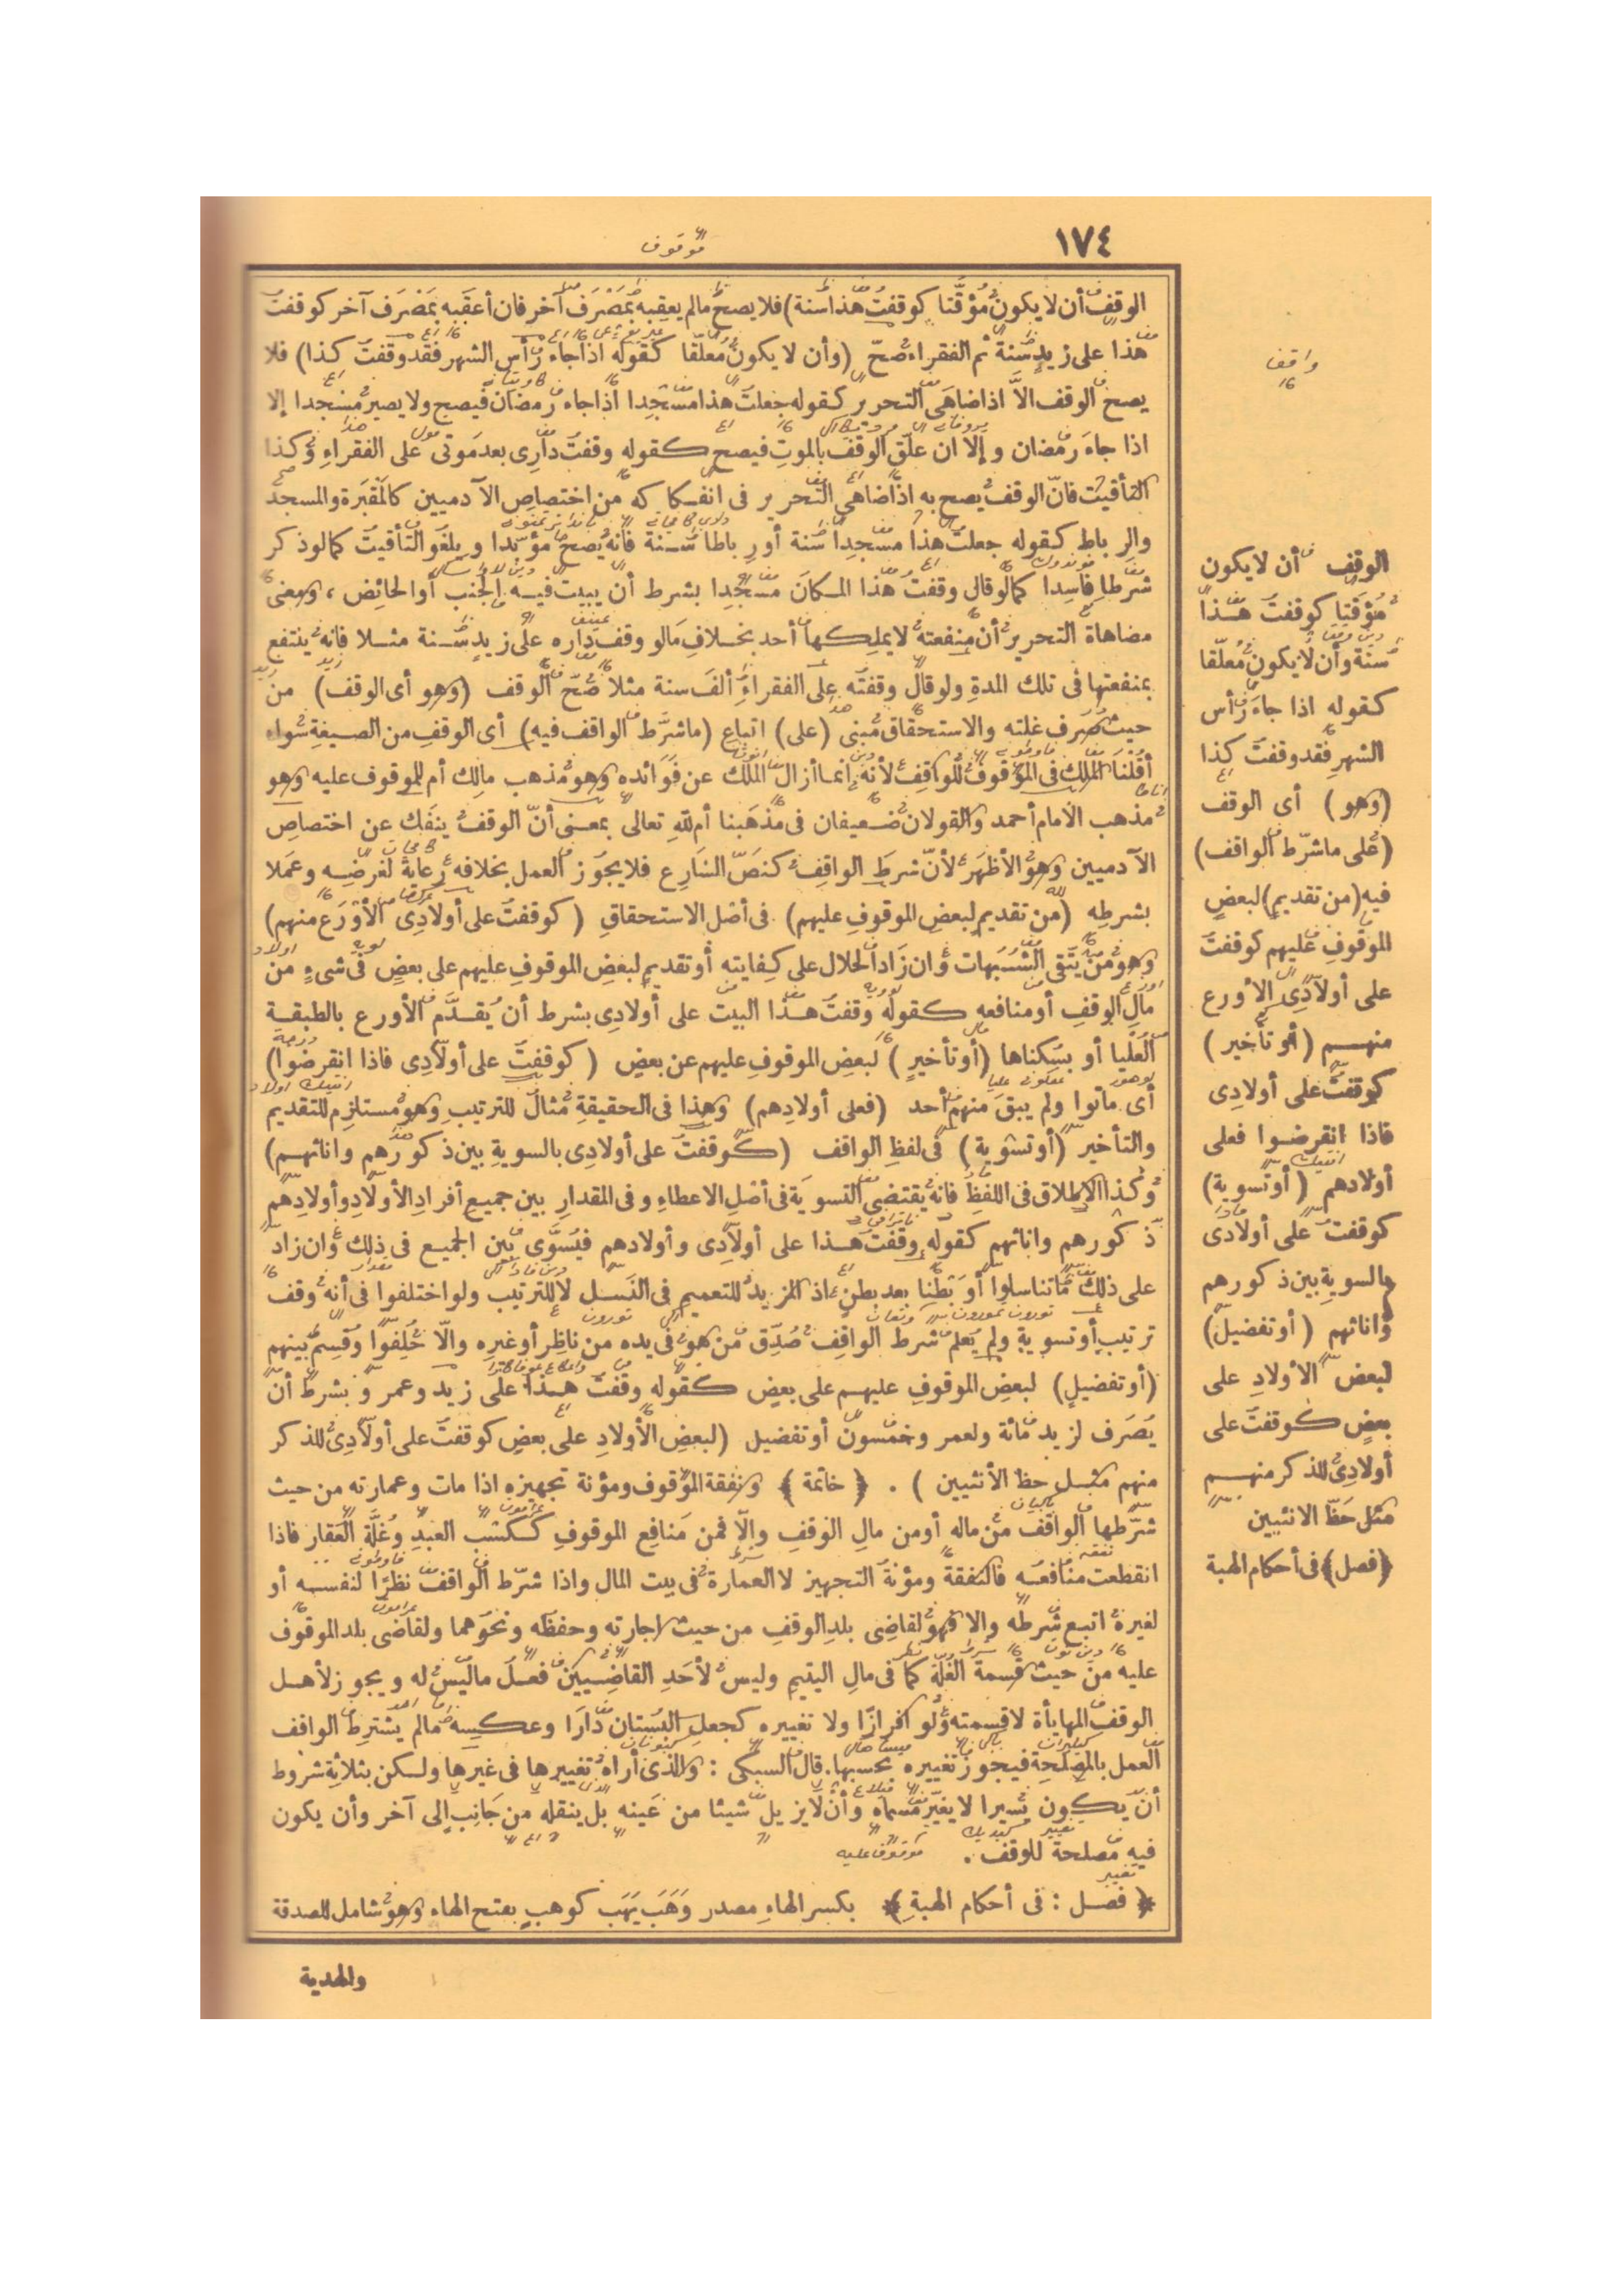 ١٧٤
موقوف
الوقف أن لا يكون مؤقتا كوقفت هذا سنة) فلا يصح مالم يعقبه بمَصْرَف آخر فان أعقبه بمَصْرَف آخر كوقفت
هذا على زيد سنة ثم الفقراء صحّ (وأن لا يكون مُعلّقا كقوله اذا جاء رأس الشهر فقد وقفت كذا) فلا
يصح الوقف الاَّ اذا ضاهى التحرير كقوله جعلت هذا مسْجِدا اذا جاء رمضان فيصح ولا يصير مسْجدا إلا
اذا جاءَ رمضان وإلا ان علّق الوقف بالموتِ فيصح كقوله وقفت دارِى بعد مَوتى على الفقراءِ وكذا
التأقيت فانّ الوقف يصح به اذا ضاهى التحرير فى انفكاكه من اختصاصِ الآدميين كالمَقبَرة والمسجد
والرباط كقوله جعلت هذا مسجدا سَنة أو رباطا سَنة فانه يصح مؤبّدا ويلغَو التأقيت كما لو ذكر
شرطا فاسِدا كما لو قال وقفت هذا المكانَ مسْجِدا بشرط أن يبيت فيه الجنب أو الحائِض ، ومعنى
مضاهاة التحرير أن منفعته لا يملكها أحد بخلافِ مَا لو وقف دارَه على زيدٍ سَنة مثلا فانه ينتفع
بمنفعتها فى تلك المدةِ ولو قال وقفتَه على الفقراءِ ألفَ سنة مثلا صَحّ الوقف (وهو أى الوقف) من
حيث صَرَف غلته والاستحقاق مَبنى (على) اتباع (ما شرَّط الواقف فيه) أى الوقفِ من الصيغةِ سواء
أقُلْنَا الملك فى الموقوف للواقِفِ لأنه انما أزال الملك عن فَوَائده وهو مذهب مالِك أم للموقوف عليه وهو
مذهب الامام أحمد والقولان ضعيفان فى مذهَبنا أم لله تعالى بمعنى أنّ الوقف ينفَك عن اختصاصِ
الآدميين وهو الأظهَر لأنّ شرطَ الواقِفِ كنصّ الشارِع فلا يجوز العمل بخلافه رعاية لغرَضِه وعمَلا
بشرطِه (من تقديم لبعضِ الموقوفِ عليهم) فى أصْل الاستحقاقِ (كوقفت على أولادِى الأوْرَع منهم)
وهو من يتّقى الشُّبَهات وان زَادَ الحلال على كِفايته أو تقديم لبعضِ الموقوفِ عليهم على بعضِ فى شىءٍ من
مالِ الوقفِ أو منافعه كقوله وقفت هذا البيت على أولادِى بشرط أن يُقدَّم الأورع بالطبقة
العُلْيا أو بسُكناها (أو تأخيرٍ) لبعضِ الموقوفِ عليهم عن بعضِ (كوقفت على أولادِى فاذا انقرضوا)
أى ماتوا ولم يبقَ منهم أحد (فعلى أولادِهم) وهذا فى الحقيقةِ مثالٌ للترتيبِ وهو مستلزِم للتقديم
والتأخير (أو تسْوية) فى لفظِ الواقف (كوقفت على أولادِى بالسويةِ بين ذكورِهم واناثهم)
وكذا الإطلاق فى اللفظِ فانه يقتضِى التسويَة فى أصْلِ الاعطاءِ وفى المقدارِ بين جميعِ أفرادِ الأولادِ وأولادِهم
ذكورهم واناثهم كقوله وقفت هذا على أولادِى وأولادهم فيُسَوَّى بين الجميع فى ذلك وان زاد
على ذلك مّا تناسلوا أو بَطنا بعد بطنٍ اذ المزيدُ للتعميمِ فى النَسل لا للترتيب ولو اختلفوا فى أنه وقف
ترتيبٍ أو تسويةٍ ولم يُعلم شرط الواقِفِ صُدِّق من هو فى يده من ناظِر أو غيرِه والّا حُلِفوا وقُسِمَ بينهم
(أو تفضيلٍ) لبعضِ الموقوفِ عليهم على بعضٍ كقوله وقفت هذا على زيد وعمرو بشرط أن
يُصَرف لزيد مائة ولعمر وخمسون أو تفضيل (لبعضِ الأولادِ على بعضِ كوقفت على أولادِى للذكر
منهم مثل حظ الأنثيين) . ﴿ خاتمة ﴾ ونفقة الموقوف ومؤنة تجهيزه اذا مات وعمارته من حيث
شرّطها الواقف من ماله أو من مالِ الوقفِ والّا فمن مَنافِع الموقوفِ ككَسْب العبدِ وغَلَّةِ العَقار فاذا
انقطعت منافعُه فالنفقة ومؤنة التجهيز لا العمارة فى بيت المال واذا شرّط الواقف نظرًا لنفسه أو
لغيره اتبع شرطه وإلا فهو لقاضِى بلدِ الوقفِ من حيث اجارته وحفظه ونحوَهما ولقاضى بلد الموقوف
عليه من حيث قسمة الغلّة كما فى مالِ اليتيمِ وليسَ لأحَدِ القاضِيين فعلَ ما ليس له ويجوز لأهل
الوقفِ المهايأة لا قِسمته ولو افرازًا ولا تغييره كجعلِ البُستان دَارَا وعكسِه مالم يشترِط الواقف
العمل بالمصْلحةِ فيجوز تغييره بحسبِها. قال السبكى : والذى أراه تغييرها فى غيرِها ولكن بثلاثةِ شروط
أن يكون يسيرا لا يغيّر مسماه وأن لا يزيل شيئا من عَينه بل ينقله من جَانِبٍ إلى آخر وأن يكون
فيه مصلحة للوقف .
﴿ فصل : فى أحكام الهبةِ ﴾ بكسرِ الهاءِ مصدر وَهَبَ يَهَب كوهبٍ بفتح الهاء وهو شامل للصدقة
والهدية
واقف
الوقف أن لا يكون
مُؤقتا كوقفت هذا
سنة وأن لا يكون مُعلّقا
كقوله اذا جاءَ رأس
الشهرِ فقد وقفت كذا
(وهو) أى الوقف
(على ما شرّط الواقف)
فيه (من تقديم) لبعضٍ
الموقوفِ عليهم كوقفت
على أولادِى الأورع
منهم (أو تأخير)
كوقفت على أولادِى
فاذا انقرضوا فعلى
أولادهم (أو تسوية)
كوقفت على أولادى
بالسويةِ بين ذكورهم
واناثهم (أو تفضيل)
لبعض الأولادِ على
بعضٍ كوقفت على
أولادِى للذكر منهم
مثل حَظّ الانثيين
﴿فصل﴾ فى أحكام الهبة